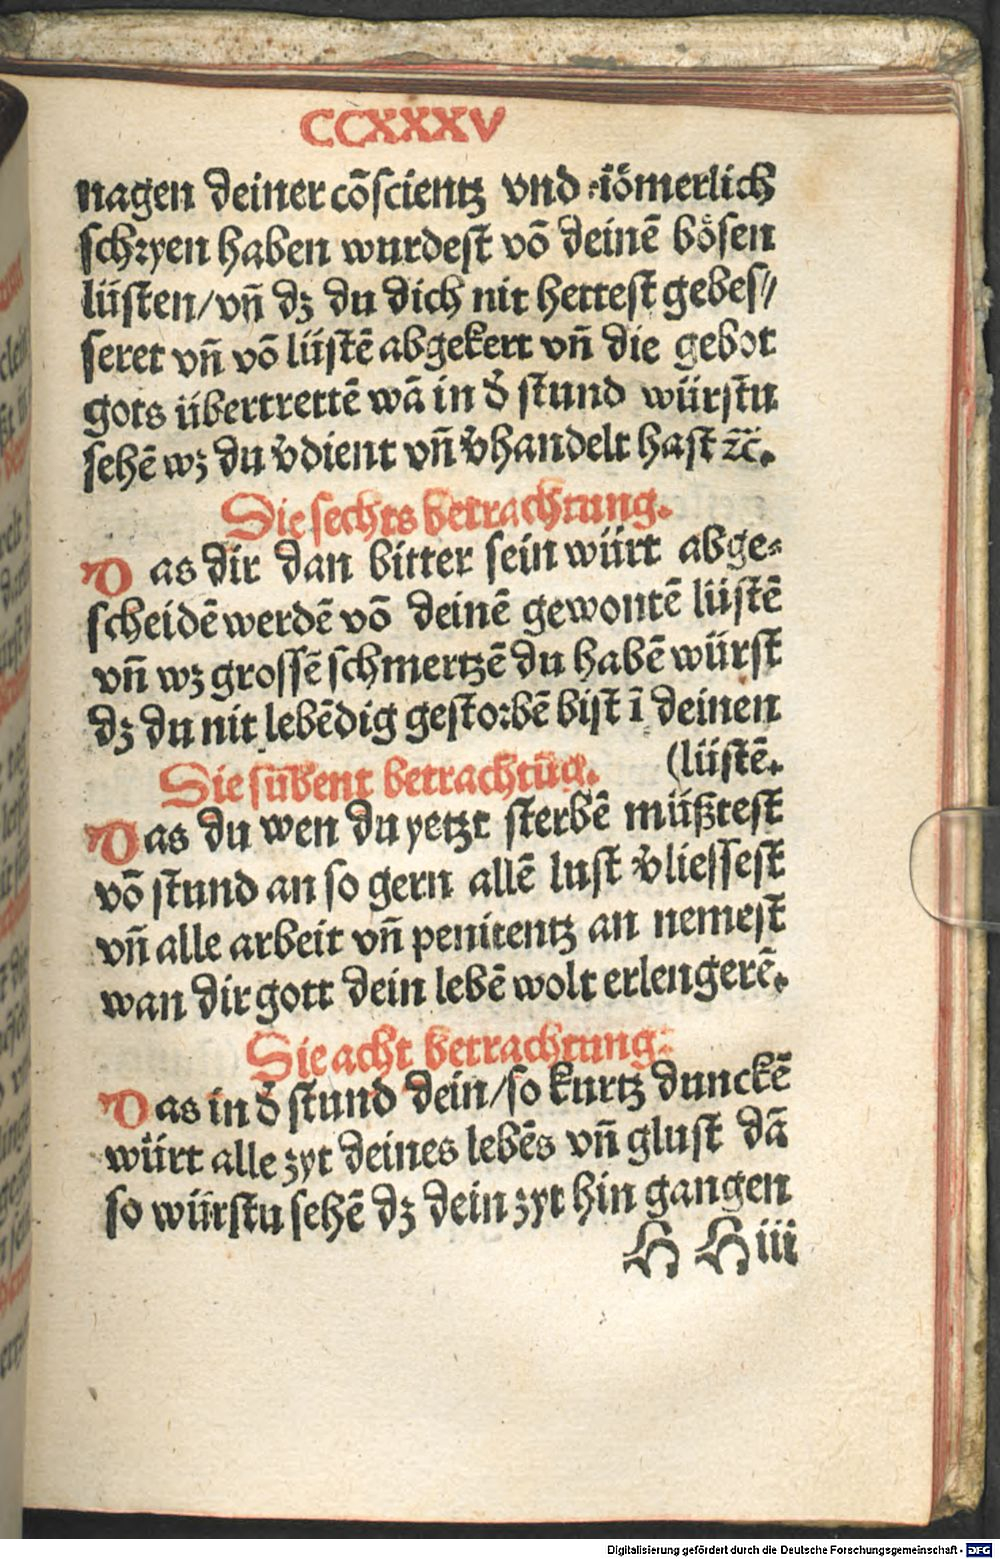 CCXXXV
nagen deiner cõscientz vnd iömerlich
schꝛyen haben wurdest võ deinẽ bösen
lüsten/vñ dʒ du dich nit hettest gebes//
seret vñ võ lüstẽ abgekert vñ die gebot
gots übertrettẽ wã in d̕ stund würstu
sehẽ wʒ du v̕dient vñ v̕handelt hast ⁊c̃.
Die sechts betrachtung.
Das dir dan bitter sein würt abge⸗
scheidẽ werdẽ võ deinẽ gewontẽ lüstẽ
vñ wʒ grossẽ schmertzẽ du habẽ würst
dʒ du nit lebẽdig gestoꝛbẽ bist ĩ deinen
(lüstẽ.
Die sübent betrachtũg.
Das du wen du yetzt sterbẽ müßtest
võ stund an so gern allẽ lust v̕liessest
vñ alle arbeit vñ penitentz an nemest
wan dir gott dein lebẽ wolt erlengerẽ.
Die acht betrachtung.
Das in d̕ stund dein/so kurtz dunckẽ
würt alle zyt deines lebẽs vñ glust dã
so würstu sehẽ dʒ dein zyt hin gangen
H Hiii
Digitalisierung gefördert durch die Deutsche Forschungsgemeinschaft - DFG